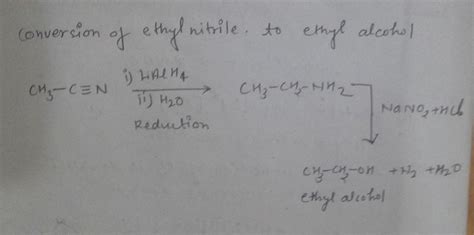 Conversion of ethyl nitrile. to ethyl alcohol
CH3-C≡N i) LiAlH4 CH3-CH2-NH2
ii) H2O
Reduction
NaNO2+HCl
CH3-CH2-OH +N2 +H2O
ethyl alcohol